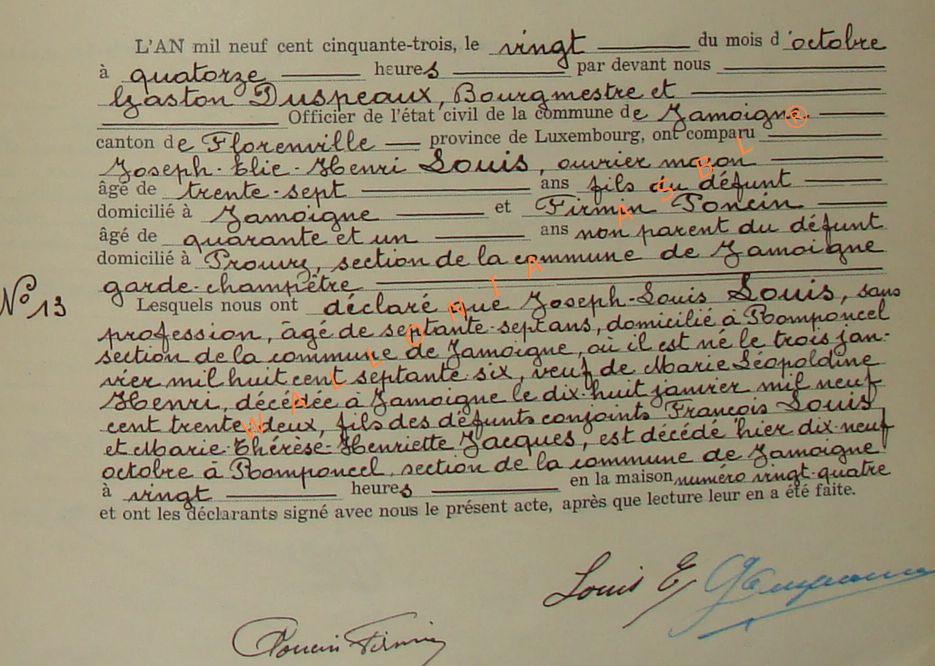 L'AN mil neuf cent cinquante-trois, le vingt du mois d'octobre
à quatorze heures par devant nous
Gaston Duspeaux, Bourgmestre et
Officier de l'état civil de la commune de Jamoigne
canton de Florenville province de Luxembourg, ont comparu
Joseph-Elie-Henri Louis, ouvrier maçon
âgé de trente-sept ans fils du défunt
domicilié à Jamoigne et Firmin Poncin
âgé de quarante et un ans non parent du défunt
domicilié à Prouvy, section de la commune de Jamoigne
garde-champêtre
N° 13
Lesquels nous ont déclaré que Joseph-Louis Louis, sans
profession, âgé de septante-sept ans, domicilié à Romponcel
section de la commune de Jamoigne, où il est né le trois jan-
vier mil huit cent septante six, veuf de Marie Léopoldine
Henri, décédée à Jamoigne le dix-huit janvier mil neuf
cent trente deux, fils des défunts conjoints François Louis
et Marie-Thérèse-Henriette Jacques, est décédé hier dix-neuf
octobre à Romponcel, section de la commune de Jamoigne
à vingt heures en la maison numéro vingt-quatre
et ont les déclarants signé avec nous le présent acte, après que lecture leur en a été faite.
WALLONIA ASBL ®
Louis E
Poncin Firmin